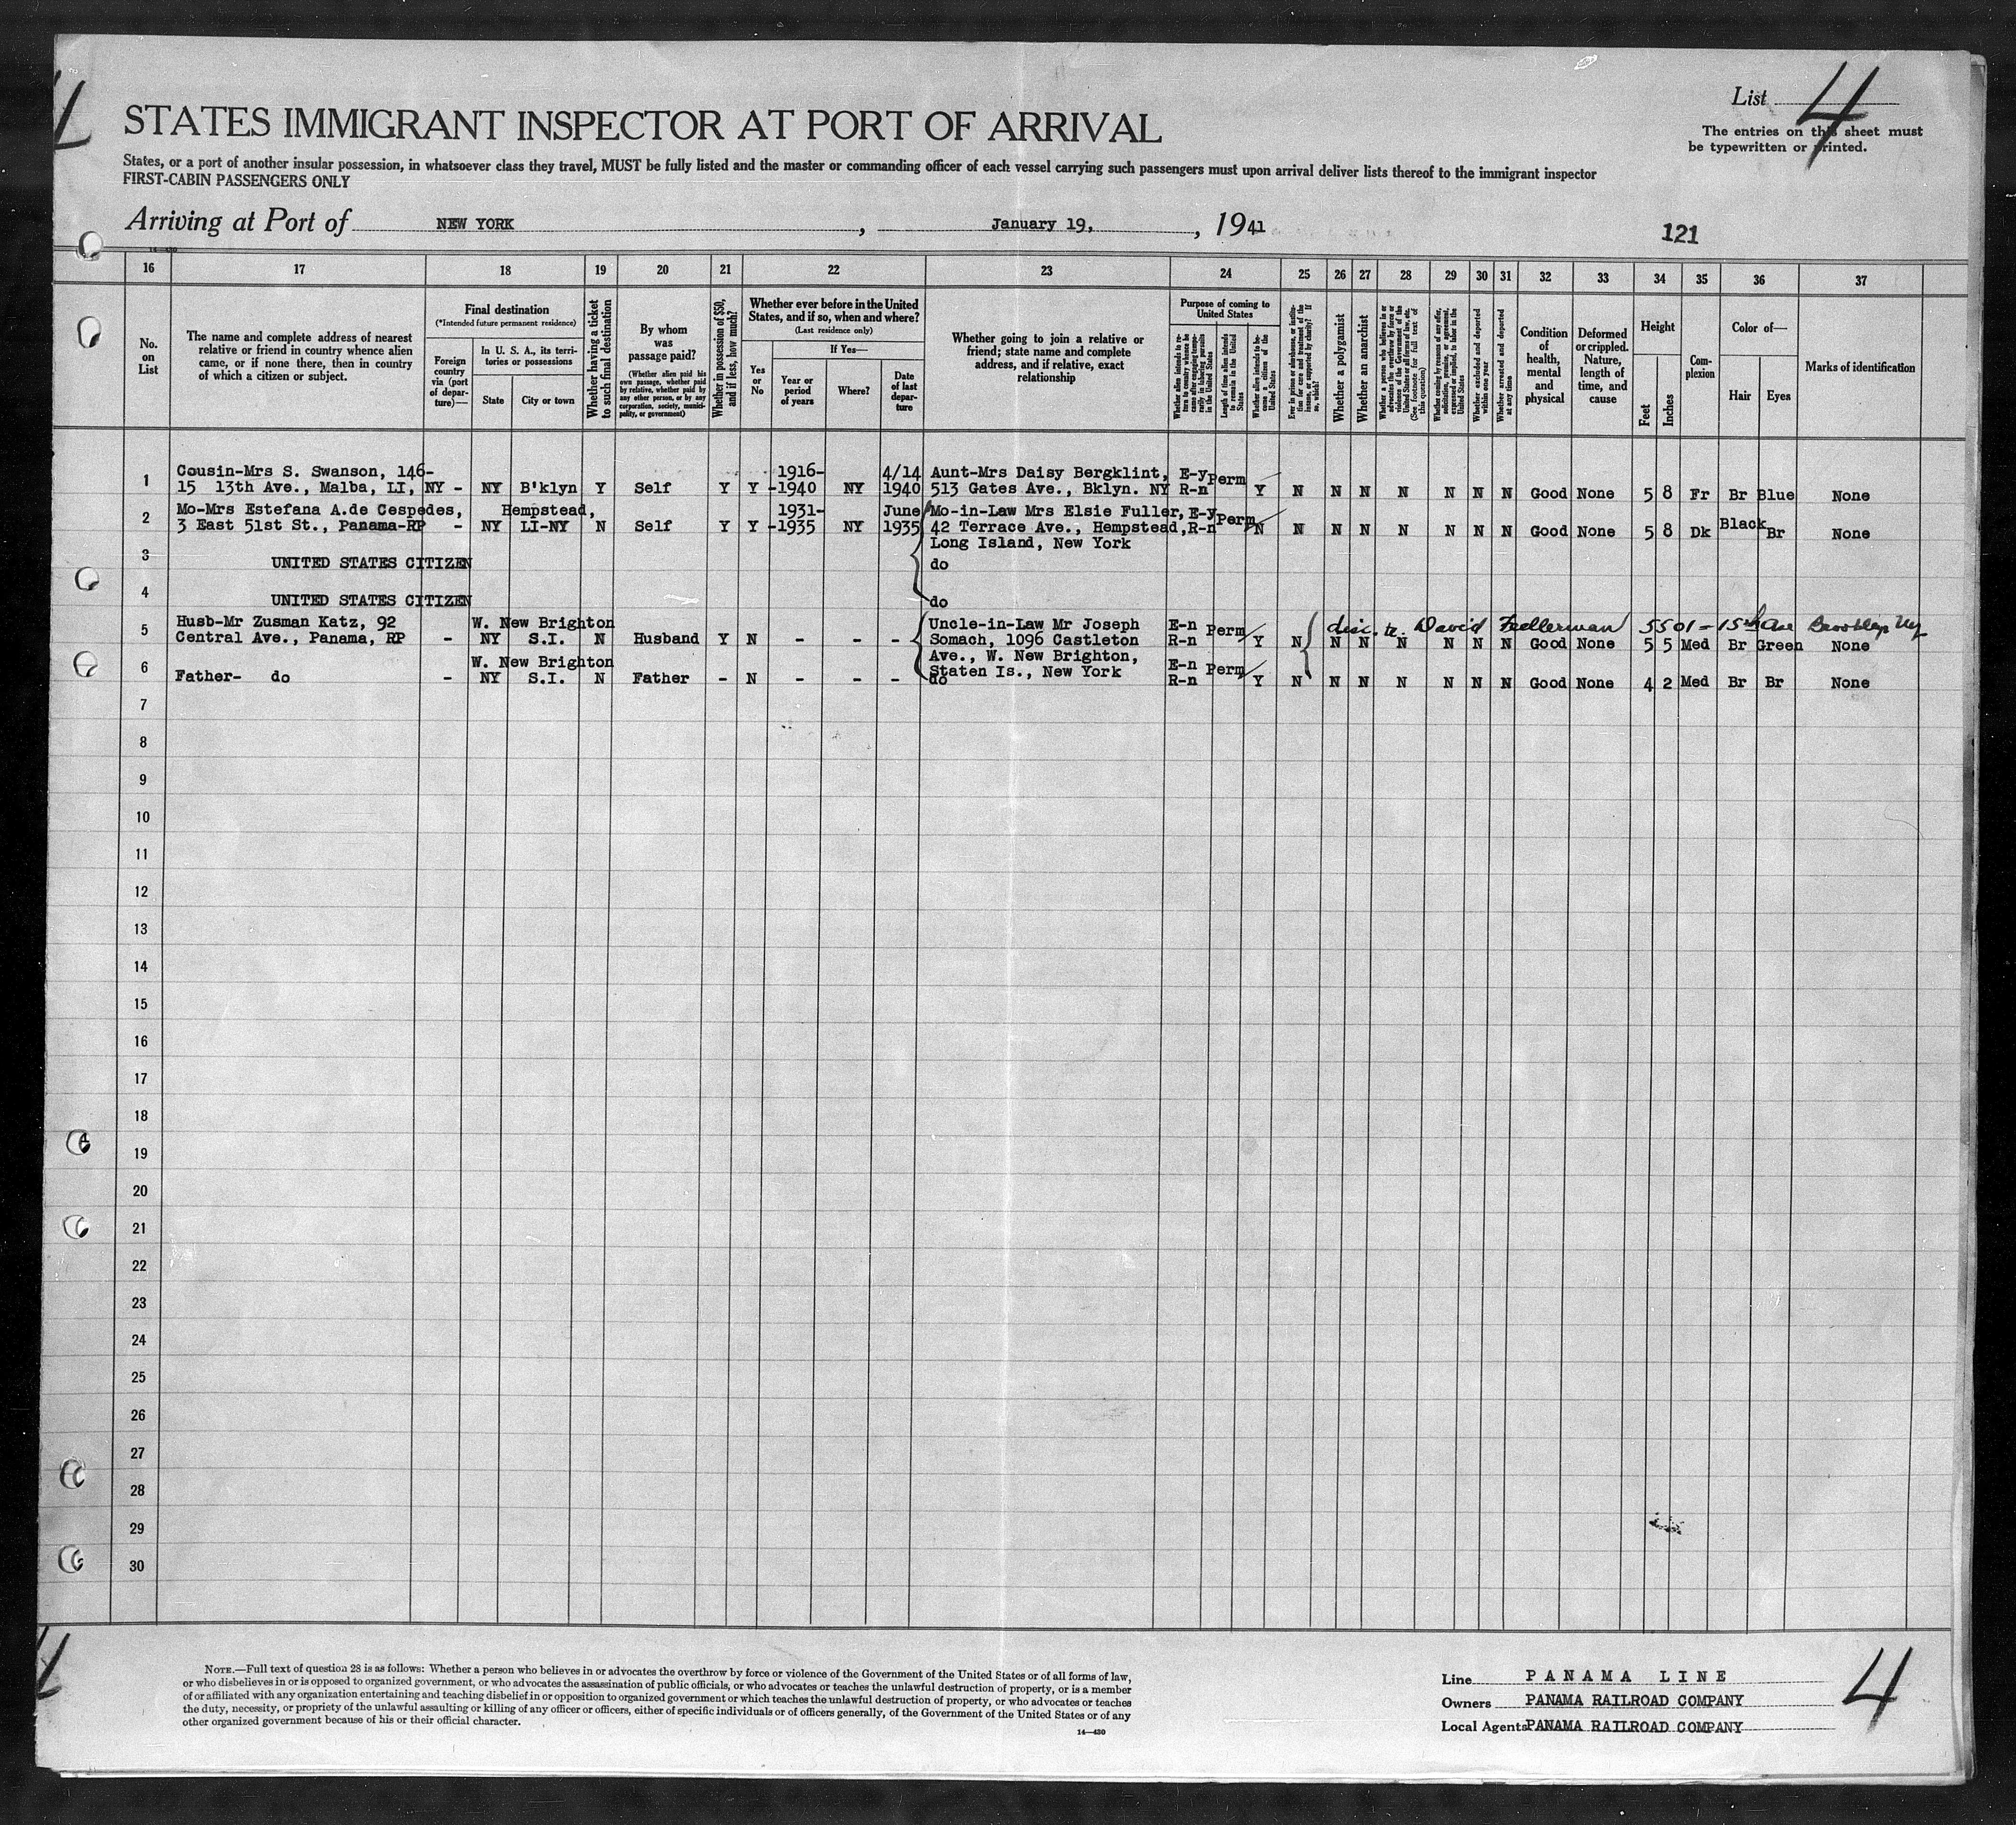 List 4
STATES IMMIGRANT INSPECTOR AT PORT OF ARRIVAL
The entries on this sheet must
be typewritten or printed.
States, or a port of another insular possession, in whatsoever class they travel, MUST be fully listed and the master or commanding officer of each vessel carrying such passengers must upon arrival deliver lists thereof to the immigrant inspector
FIRST-CABIN PASSENGERS ONLY
Arriving at Port of NEW YORK, January 19, 1941
121
14—430
16 17 18 19 20 21 22 23 24 25 26 27 28 29 30 31 32 33 34 35 36 37
No. on List
The name and complete address of nearest relative or friend in country whence alien came, or if none there, then in country of which a citizen or subject.
Final destination
(*Intended future permanent residence)
Foreign country via (port of departure)—
In U. S. A., its territories or possessions
State
City or town
Whether having a ticket to such final destination
By whom was passage paid?
(Whether alien paid his own passage, whether paid by relative, whether paid by any other person, or by any corporation, society, municipality, or government)
Whether in possession of $50, and if less, how much?
Whether ever before in the United States, and if so, when and where?
(Last residence only)
Yes or No
If Yes—
Year or period of years
Where?
Date of last departure
Whether going to join a relative or friend; state name and complete address, and if relative, exact relationship
Purpose of coming to United States
Whether alien intends to return to country whence he came after engaging temporarily in laboring pursuits in the United States
Length of time alien intends to remain in the United States
Whether alien intends to become a citizen of the United States
Ever in prison or almshouse, or institution for care and treatment of the insane, or supported by charity? If so, which?
Whether a polygamist
Whether an anarchist
Whether a person who believes in or advocates the overthrow by force or violence of the Government of the United States or all forms of law, etc. (See footnote for full text of this question)
Whether coming by reasons of any offer, solicitation, promise, or agreement, expressed or implied, to labor in the United States
Whether excluded and deported within one year
Whether arrested and deported at any time
Condition of health, mental and physical
Deformed or crippled. Nature, length of time, and cause
Height
Feet
Inches
Complexion
Color of—
Hair
Eyes
Marks of identification
1 Cousin-Mrs S. Swanson, 146- 1916- 4/14 Aunt-Mrs Daisy Bergklint, E-y Perm
15 13th Ave., Malba, LI, NY - NY B'klyn Y Self Y Y -1940 NY 1940 513 Gates Ave., Bklyn. NY R-n Y N N N N N N N Good None 5 8 Fr Br Blue None
2 Mo-Mrs Estefana A.de Cespedes, Hempstead, 1931- June Mo-in-Law Mrs Elsie Fuller, E-y Perm Black
3 East 51st St., Panama-RP - NY LI-NY N Self Y Y -1935 NY 1935 42 Terrace Ave., Hempstead, R-n N N N N N N N N Good None 5 8 Dk Br None
Long Island, New York
3 UNITED STATES CITIZEN do
4 UNITED STATES CITIZEN do
5 Husb-Mr Zusman Katz, 92 W. New Brighton Uncle-in-Law Mr Joseph E-n Perm David 5501-15th Ave Brooklyn NY
Central Ave., Panama, RP - NY S.I. N Husband Y N - - - Somach, 1096 Castleton R-n Y N N N N N N N Good None 5 5 Med Br Green None
Ave., W. New Brighton,
6 W. New Brighton Staten Is., New York E-n Perm
Father- do - NY S.I. N Father - N - - - do R-n Y N N N N N N N Good None 4 2 Med Br Br None
7
8
9
10
11
12
13
14
15
16
17
18
19
20
21
22
23
24
25
26
27
28
29
30
NOTE.—Full text of question 28 is as follows: Whether a person who believes in or advocates the overthrow by force or violence of the Government of the United States or of all forms of law,
or who disbelieves in or is opposed to organized government, or who advocates the assassination of public officials, or who advocates or teaches the unlawful destruction of property, or is a member
of or affiliated with any organization entertaining and teaching disbelief in or opposition to organized government or which teaches the unlawful destruction of property, or who advocates or teaches
the duty, necessity, or propriety of the unlawful assaulting or killing of any officer or officers, either of specific individuals or of officers generally, of the Government of the United States or of any
other organized government because of his or their official character.
14—430
Line PANAMA LINE
Owners PANAMA RAILROAD COMPANY
Local Agents PANAMA RAILROAD COMPANY
4